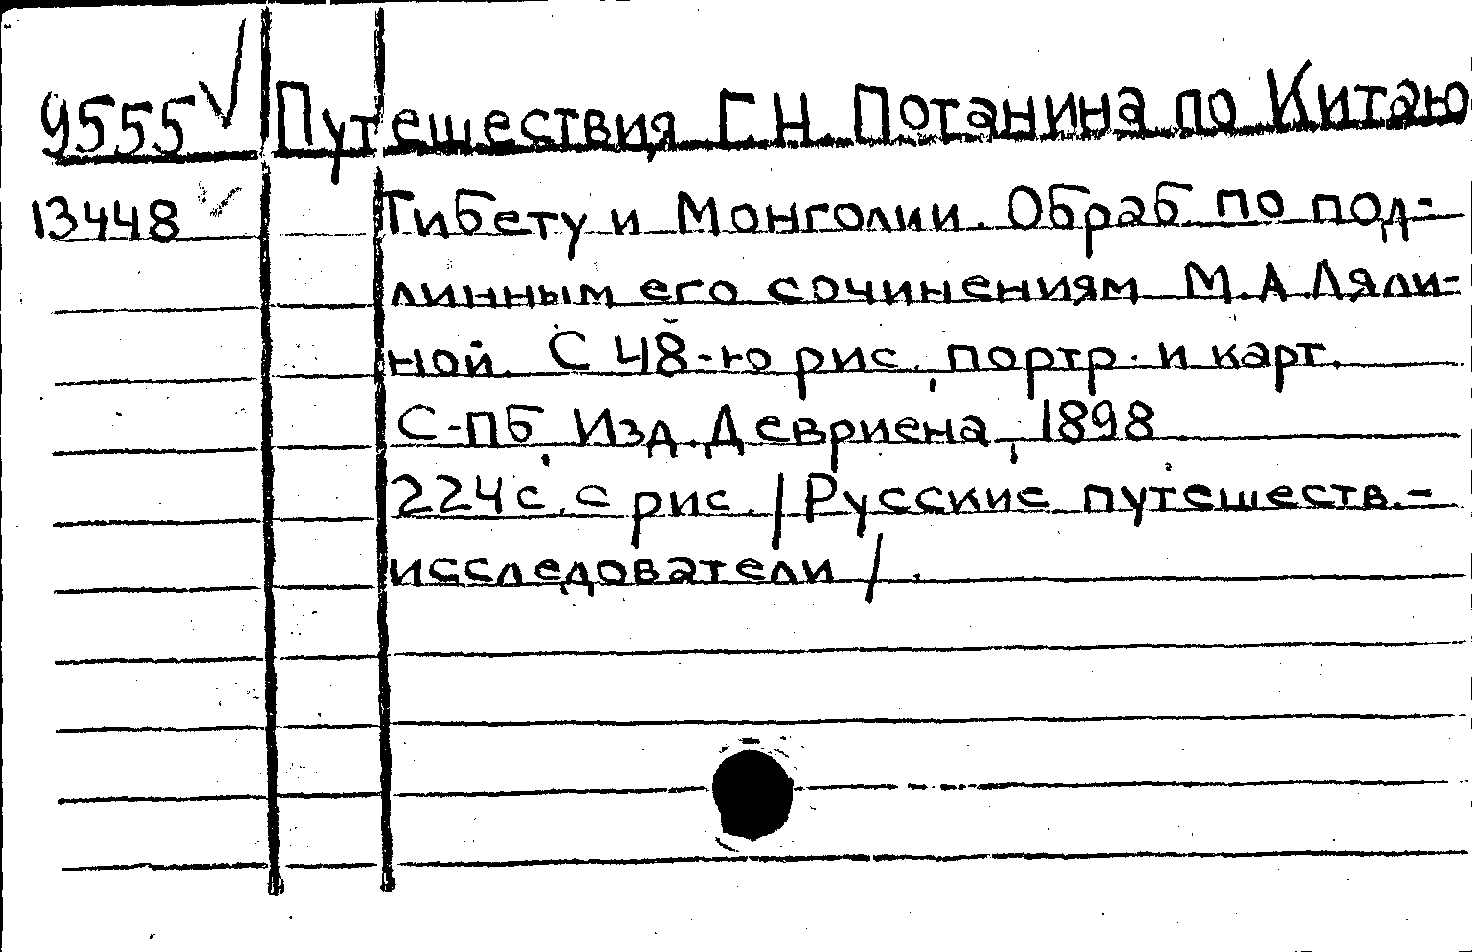 9555 ✓ Путешествия Г.Н. Потанина по Китаю
13448 ✓ Тибету и Монголии. Обраб. по под-
линным его сочинениям М.А. Ляли-
ной. С 48-ю рис., портр. и карт.
С-ПБ, Изд. Девриена, 1898
224с. с рис. /Русские путешеств.-
исследователи/.